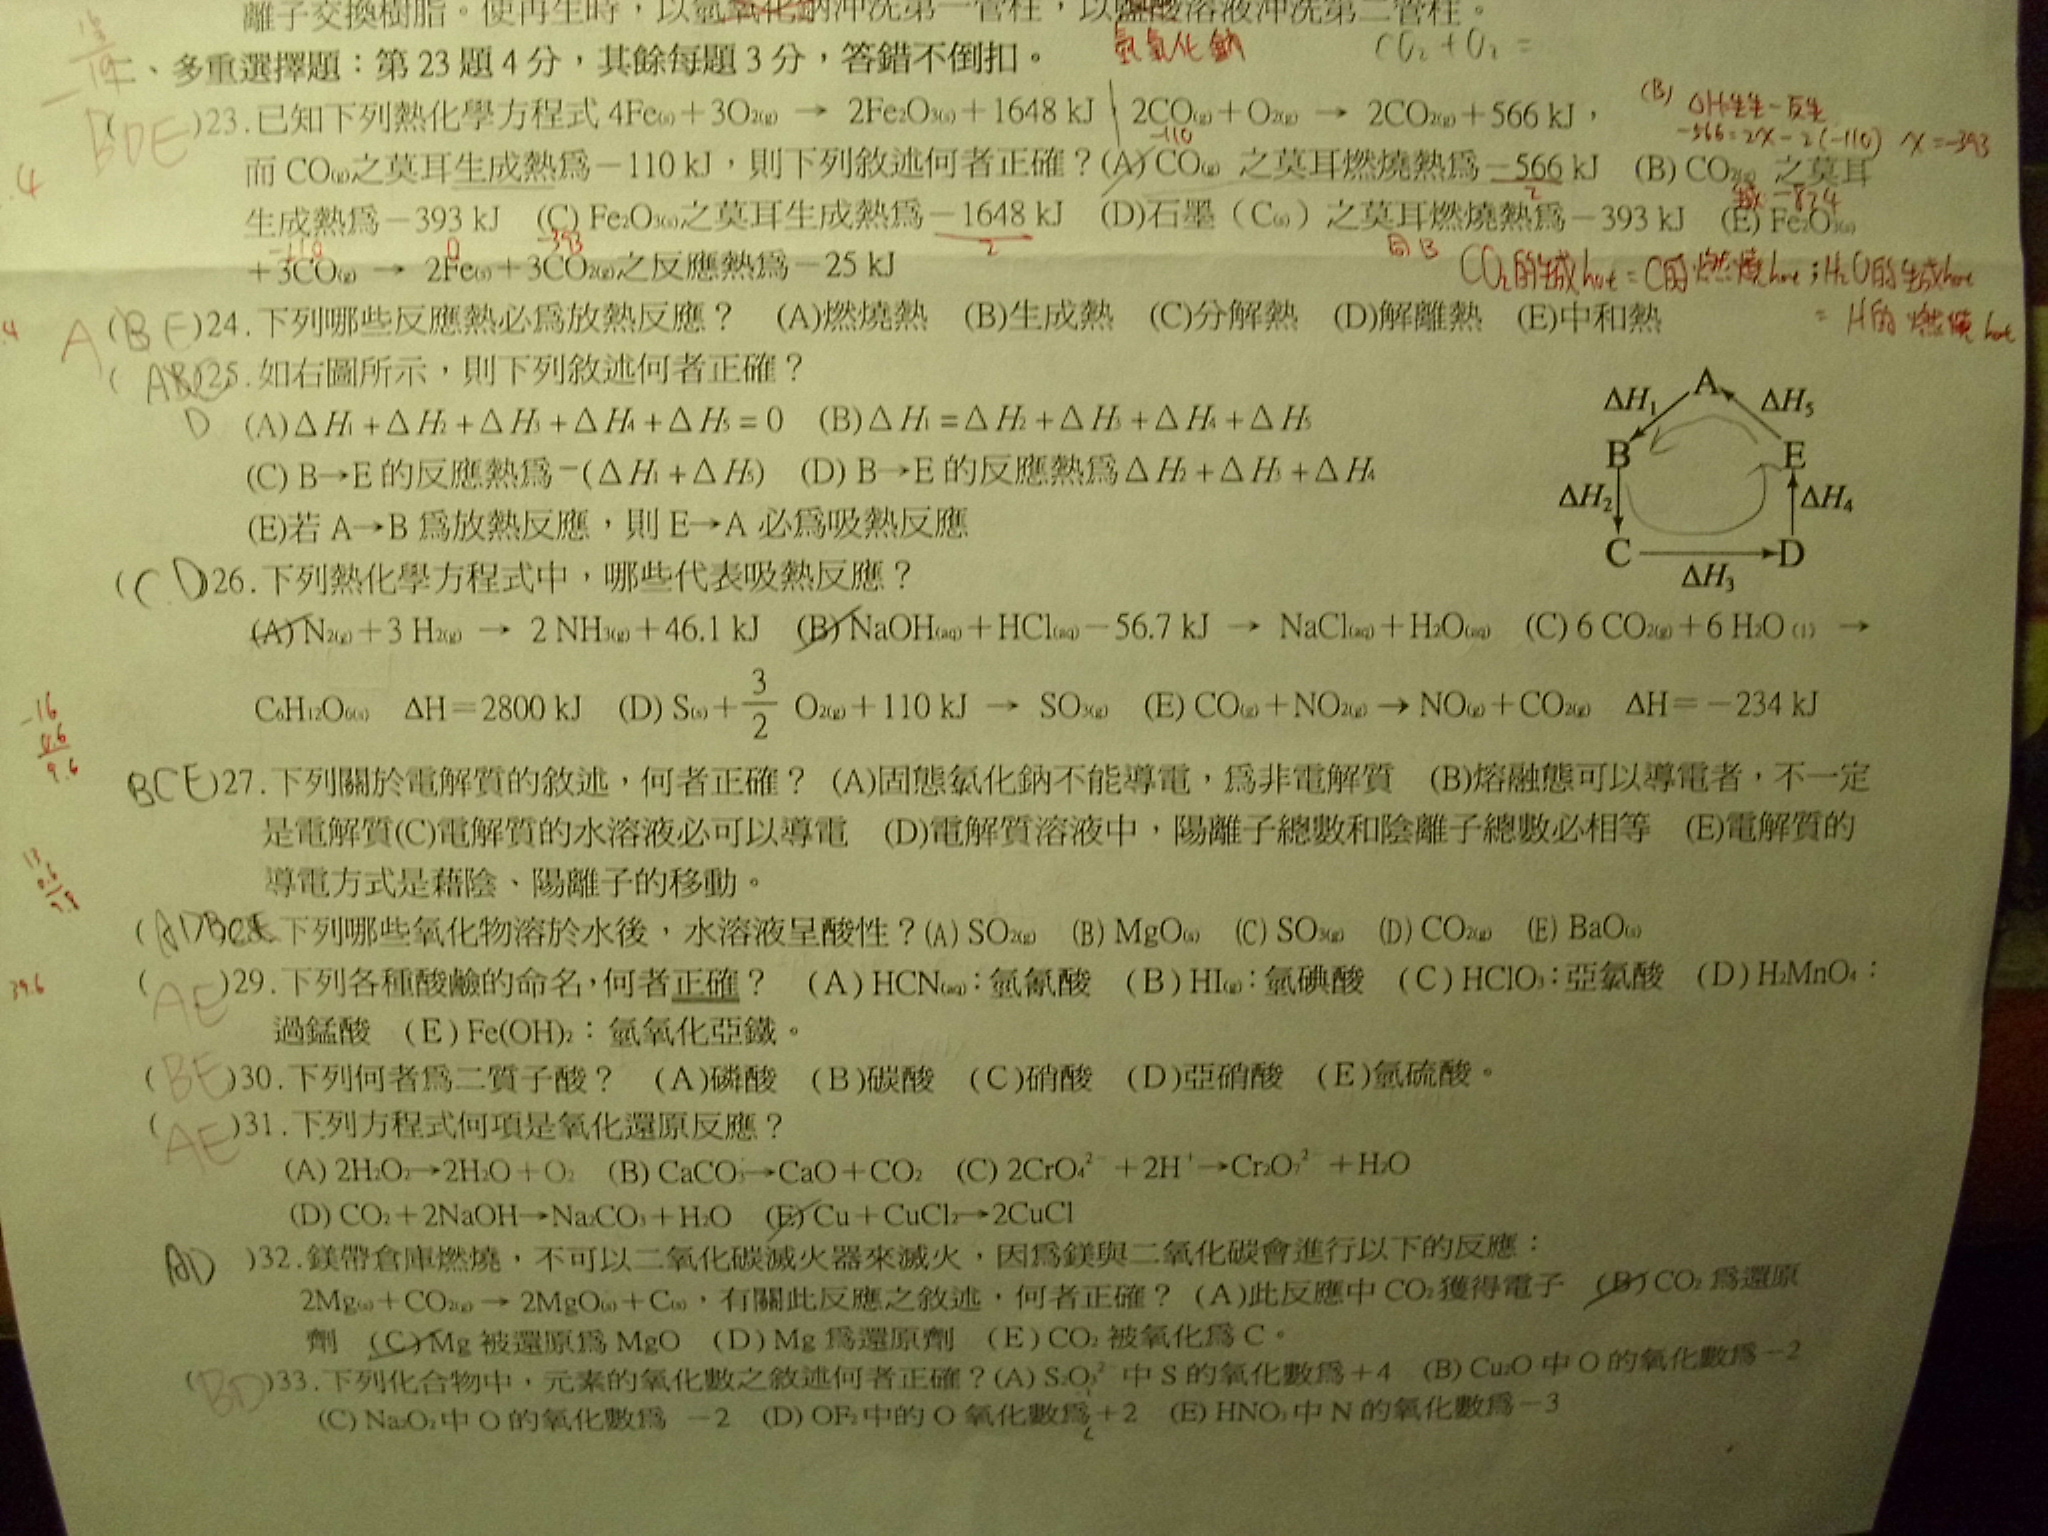 離子交換樹脂。使再生時，以氫氧化鈉沖洗第一管柱，以鹽酸溶液沖洗第二管柱。
氫氧化鈉
CO₂+O₂=
二、多重選擇題：第23題4分，其餘每題3分，答錯不倒扣。
(BDE)23.已知下列熱化學方程式 4Fe(s)+3O₂(g) → 2Fe₂O₃(s)+1648 kJ，2CO(g)+O₂(g) → 2CO₂(g)+566 kJ，
(B) ΔH=生-反
-566=2x-2(-110) x=-393
-110
而 CO(g)之莫耳生成熱為－110 kJ，則下列敘述何者正確？(A) CO(g) 之莫耳燃燒熱為－566 kJ (B) CO₂(g) 之莫耳
4
2
-824
生成熱為－393 kJ (C) Fe₂O₃(s)之莫耳生成熱為－1648 kJ (D)石墨（C(s)）之莫耳燃燒熱為－393 kJ (E) Fe₂O₃(s)
-110 0 -393 2 同B
+3CO(g) → 2Fe(s)+3CO₂(g)之反應熱為－25 kJ
CO₂的生成heat=C的燃燒heat；H₂O的生成heat
=H的燃燒heat
4
A(BE)24.下列哪些反應熱必為放熱反應？ (A)燃燒熱 (B)生成熱 (C)分解熱 (D)解離熱 (E)中和熱
(ABC)25.如右圖所示，則下列敘述何者正確？
D (A)ΔH₁+ΔH₂+ΔH₃+ΔH₄+ΔH₅=0 (B)ΔH₁=ΔH₂+ΔH₃+ΔH₄+ΔH₅
(C) B→E 的反應熱為－(ΔH₁+ΔH₅) (D) B→E 的反應熱為ΔH₂+ΔH₃+ΔH₄
(E)若 A→B 為放熱反應，則 E→A 必為吸熱反應
A
ΔH₁ ΔH₅
B E
ΔH₂ ΔH₄
C D
ΔH₃
(CD)26.下列熱化學方程式中，哪些代表吸熱反應？
(A) N₂(g)+3 H₂(g) → 2 NH₃(g)+46.1 kJ (B) NaOH(aq)+HCl(aq)－56.7 kJ → NaCl(aq)+H₂O(aq) (C) 6 CO₂(g)+6 H₂O(l) →
C₆H₁₂O₆(s) ΔH＝2800 kJ (D) S(s)+3/2 O₂(g)+110 kJ → SO₃(g) (E) CO(g)+NO₂(g)→NO(g)+CO₂(g) ΔH＝－234 kJ
-16
9.6
BCE)27.下列關於電解質的敘述，何者正確？ (A)固態氯化鈉不能導電，為非電解質 (B)熔融態可以導電者，不一定
是電解質(C)電解質的水溶液必可以導電 (D)電解質溶液中，陽離子總數和陰離子總數必相等 (E)電解質的
導電方式是藉陰、陽離子的移動。
下列哪些氧化物溶於水後，水溶液呈酸性？(A) SO₂(g) (B) MgO(s) (C) SO₃(g) (D) CO₂(g) (E) BaO(s)
39.6
(AE)29.下列各種酸鹼的命名，何者正確？ (A) HCN(aq)：氫氰酸 (B) HI(g)：氫碘酸 (C) HClO₃：亞氯酸 (D) H₂MnO₄：
過錳酸 (E) Fe(OH)₂：氫氧化亞鐵。
(BE)30.下列何者為二質子酸？ (A)磷酸 (B)碳酸 (C)硝酸 (D)亞硝酸 (E)氫硫酸。
(AE)31.下列方程式何項是氧化還原反應？
(A) 2H₂O₂→2H₂O+O₂ (B) CaCO₃→CaO+CO₂ (C) 2CrO₄²⁻+2H⁺→Cr₂O₇²⁻+H₂O
(D) CO₂+2NaOH→Na₂CO₃+H₂O (E) Cu+CuCl₂→2CuCl
AD )32.鎂帶倉庫燃燒，不可以二氧化碳滅火器來滅火，因為鎂與二氧化碳會進行以下的反應：
2Mg(s)+CO₂(g)→2MgO(s)+C(s)，有關此反應之敘述，何者正確？ (A)此反應中 CO₂獲得電子 (B) CO₂為還原
劑 (C) Mg 被還原為 MgO (D) Mg 為還原劑 (E) CO₂ 被氧化為 C。
(BD)33.下列化合物中，元素的氧化數之敘述何者正確？(A) S₂O₃²⁻ 中 S 的氧化數為+4 (B) Cu₂O 中 O 的氧化數為－2
(C) Na₂O₂中 O 的氧化數為 －2 (D) OF₂中的 O 氧化數為+2 (E) HNO₃中 N 的氧化數為－3